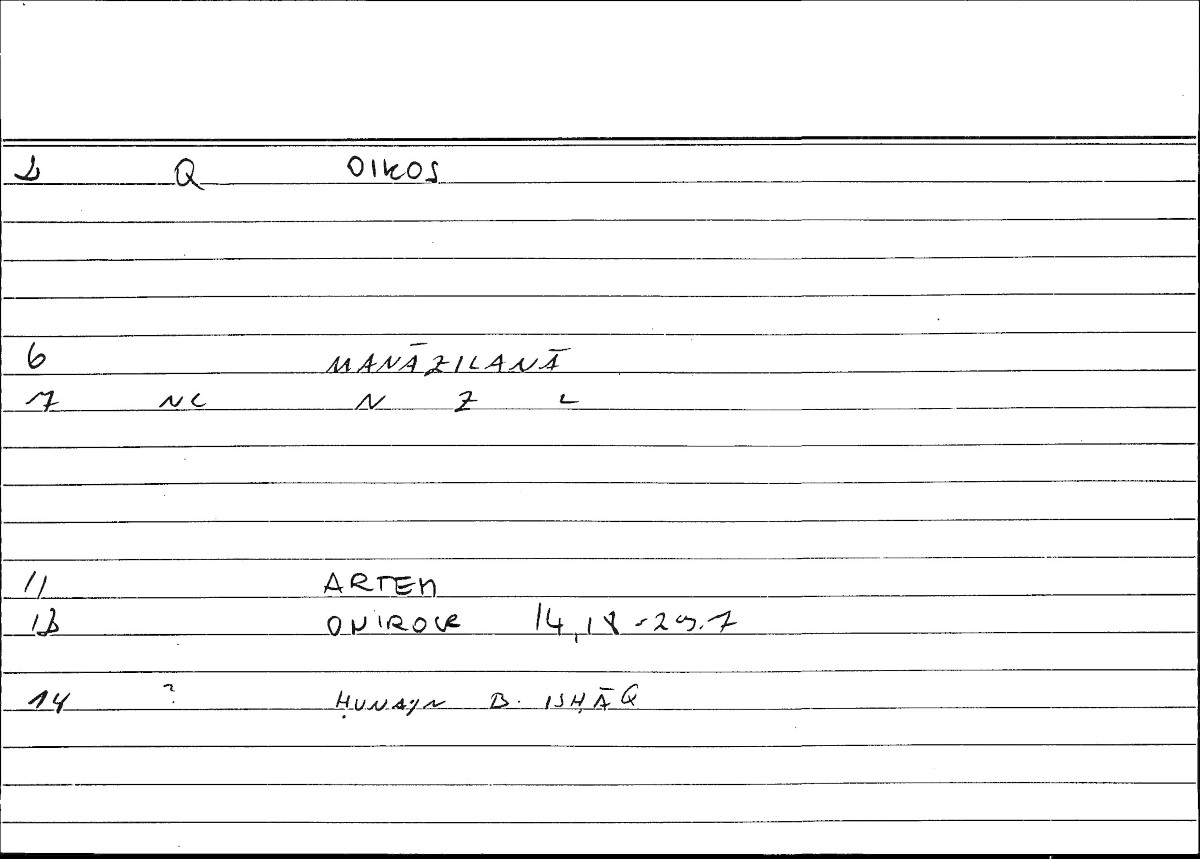 1 Q OIKOS
6 MANĀZILANĀ
7 NC N Z L
11 ARTEM
13 ONIROCR 14,18-
14 ? ḤUNAYN B. ISḤĀQ